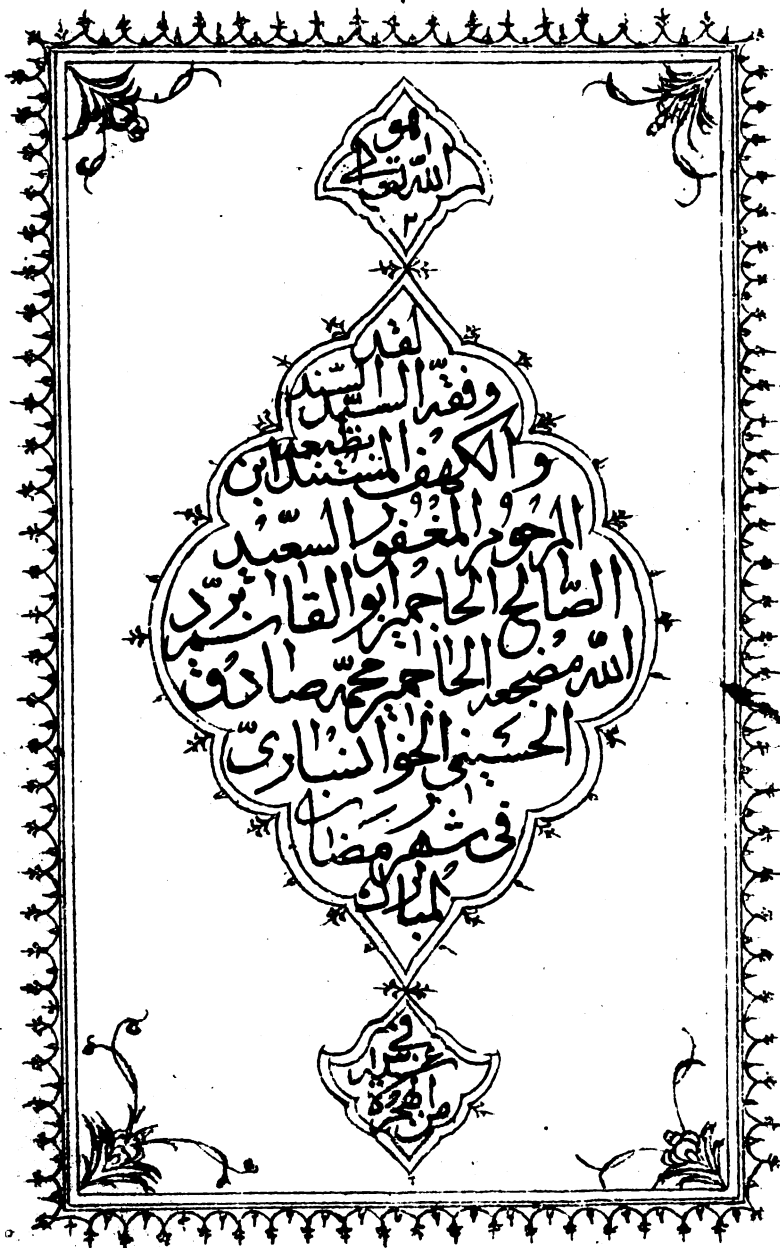 هو
الله تعالى
٢
لقد
وفقه السيد السند
والكهف المستند ابن
المرحوم المغفور السعيد
الصالح الحاج مير ابو القاسم برّد
الله مضجعه الحاج مير محمد صادق
الحسيني الخوانساري
في شهر رمضان
المبارك
في
من الهجرة